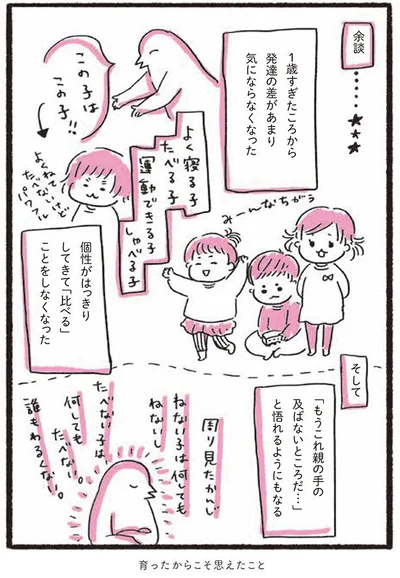 余談
１歳すぎたころから
発達の差があまり
気にならなくなった
この子は
この子!!
よくねてないけど
たべないけど
パワフル
よく寝る子
たべる子
運動できる子
しゃべる子
みーんなちがう
個性がはっきり
してきて「比べる」
ことをしなくなった
そして
「もうこれ親の手の
及ばないところだ…」
と悟れるようにもなる
周り見たかんじ
ねない子は何しても
ねないし
たべない子は
何しても
たべない。
誰もわるくない。
育ったからこそ思えたこと